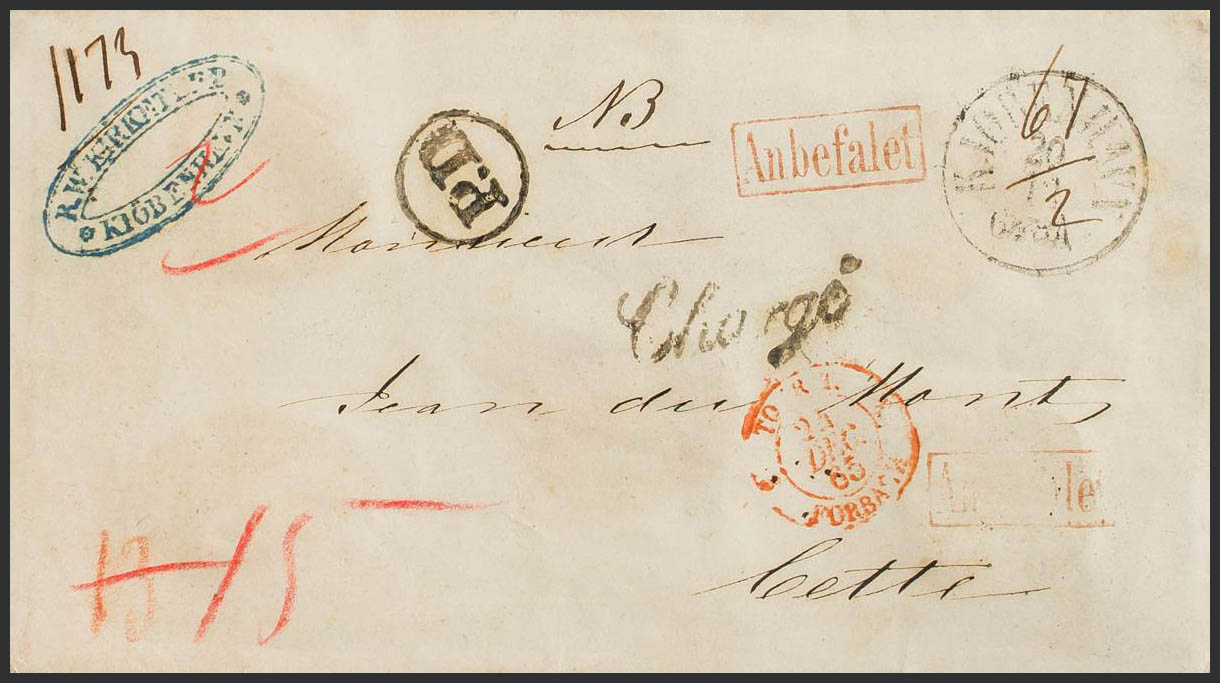 1173
R.W. KIERKETERP
* KIÖBENHAVN *
P.D.
NB
Anbefalet
KJØBENHAVN
67
2
Monsieur
Chargé
Jean du Mont,
TOUR T.
DEC.
65
FORBACH
Anbefalet
Cette
13 15